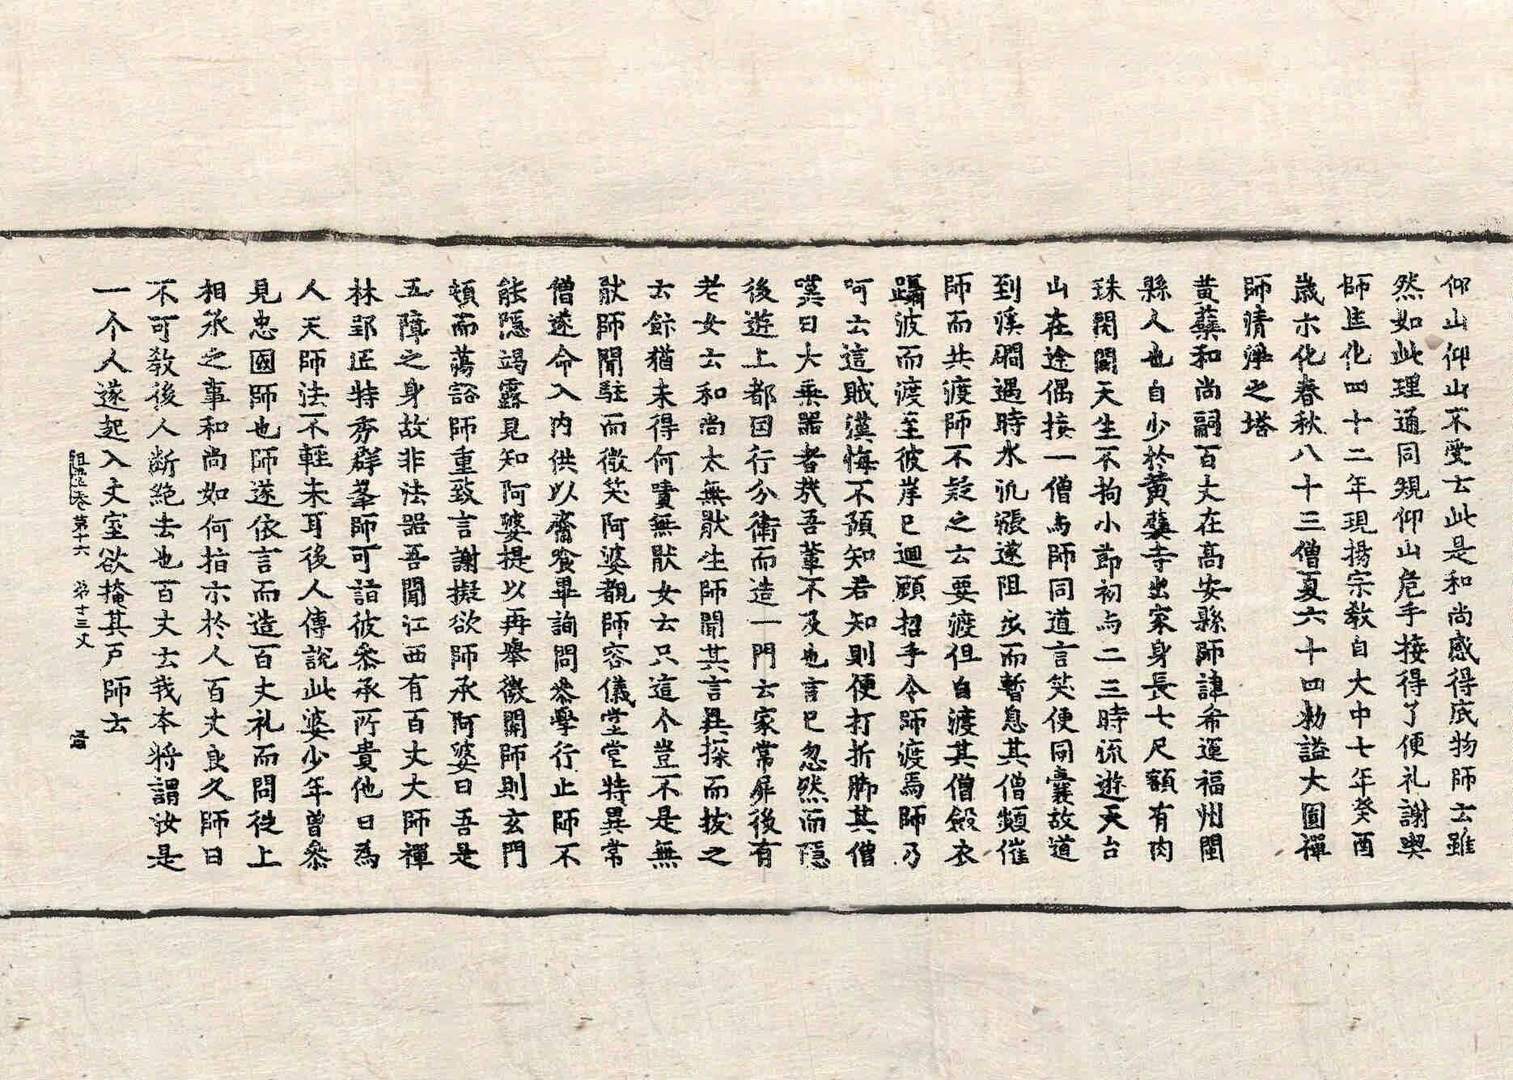 仰山仰山不受云此是和尚感得底物師云雖
然如此理通同規仰山危手接得了便礼謝喫
師匡化四十二年現揚宗教自大中七年癸酉
歲示化春秋八十三僧夏六十四勑謚大圓禪
師清淨之塔
黃蘗和尚嗣百丈在高安縣師諱希運福州閩
縣人也自少於黃蘗寺出家身長七尺額有肉
珠閑閑天生不拘小節初与二三時流遊天台
山在途偶接一僧与師同道言笑便同囊故道
到溪㵎遇時水汎漲遂阻步而暫息其僧頻催
師而共渡師不疑之云要渡但自渡其僧斂衣
躡波而渡至彼岸已迴顧招手令師渡焉師乃
呵云這賊漢悔不預知若知則便打折脚其僧
嘆曰大乗器者㦲吾輩不及也言已忽然而隱
後遊上都因行分衛而造一門云家常屏後有
老女云和尚太無猒生師聞其言異探而拔之
云飯猶未得何責無猒女云只這个豈不是無
猒師聞駐而微笑阿婆覩師容儀堂堂特異常
僧遂命入內供以齋飡畢詢問叅學行止師不
能隱竭露見知阿婆提以再舉微關師則玄門
頓而蕩豁師重致言謝擬欲師承阿婆曰吾是
五障之身故非法器吾聞江西有百丈大師禪
林郢迊特秀群峯師可詣彼叅承所貴他日為
人天師法不輕未耳後人傳說此婆少年曾叅
見忠國師也師遂依言而造百丈礼而問從上
相承之事和尚如何指示於人百丈良久師曰
不可敎後人斷絕去也百丈云我本將謂汝是
一个人遂起入丈室欲掩其戶師云
祖堂卷第十六　第十三丈